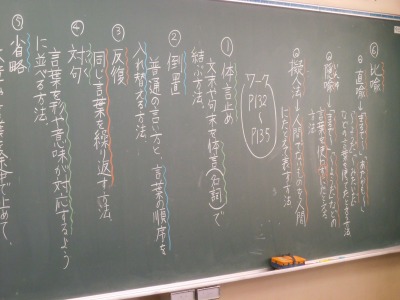 ⑥比喩
直喩→
隠喩→
言葉を使わずにたとえる
方法
擬人法→人間でないものを人間
にたとえて表す方法
ワーク
P132
〜
P135
①体言止め
文末や句末を体言(名詞)で
結ぶ方法
②倒置
普通の言い方と、言葉の順序を
入れ替える方法
③反復
同じ言葉を繰り返す方法
④対句
言葉を形や意味が対応するよう
に並べる方法
⑤省略